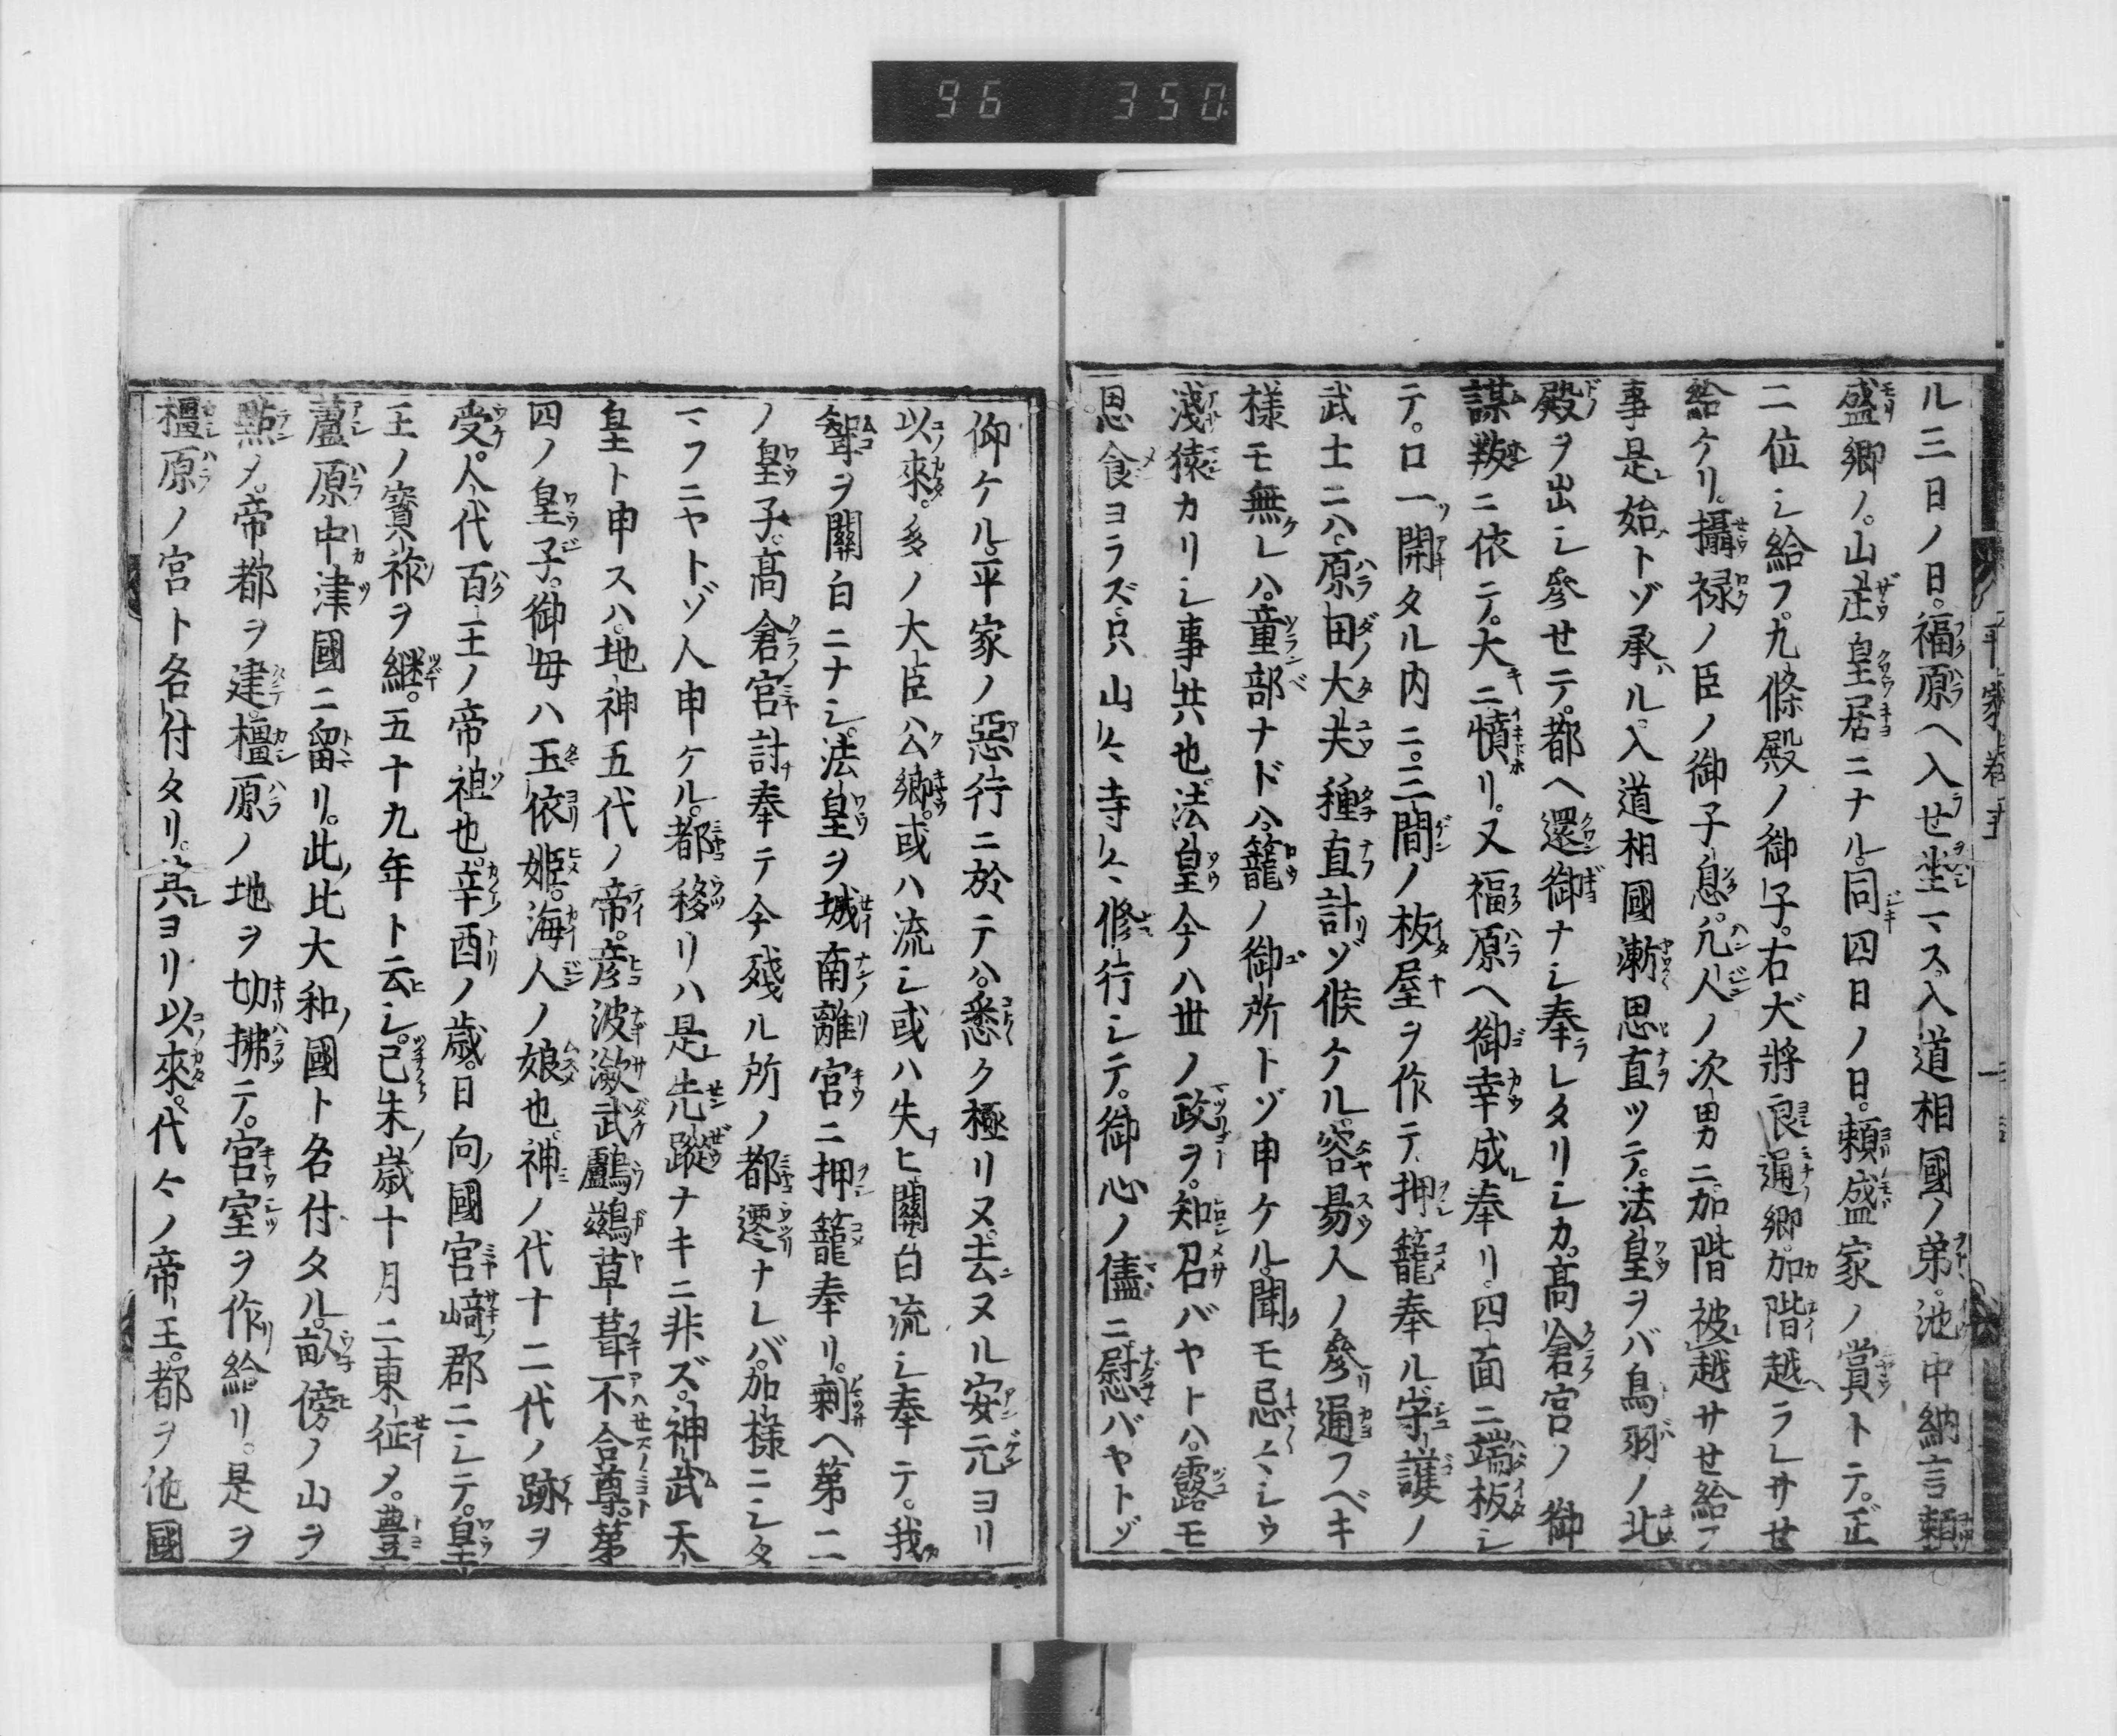 96 350
ル三日ノ日。福原ヘ入セ坐マス。入道相國ノ弟。池中納言頼
盛卿ノ。山庄皇居ニナル。同四日ノ日。頼盛家ノ賞トテ。正
二位シ給フ。九條殿ノ御子。右大將良通卿。加階越ラレサセ
給ケリ。攝禄ノ臣ノ御子息。凡人ノ次男ニ加階被越サセ給フ
事是始トゾ承ル。入道相國漸思直ツテ。法皇ヲバ鳥羽ノ北
殿ヲ出シ參セテ。都ヘ還御ナシ奉ラレタリシカ。髙倉宮ノ御
謀叛ニ依テ。大ニ憤リ。又福原ヘ御幸成奉リ。四面ニ端板シ
テ。口一開タル内ニ。三間ノ板屋ヲ作テ押籠奉ル守護ノ
武士ニハ。原田大夫種直計ゾ候ケル。容易人ノ參通フベキ
様モ無レハ。童部ナドハ籠ノ御所トゾ申ケル。聞モ忌々シウ
淺猿カリシ事共也。法皇今ハ世ノ政ヲ。知召バヤトハ。露モ
思食ヨラズ。只山々寺々修行シテ。御心ノ儘ニ慰バヤトゾ
仰ケル。平家ノ惡行ニ於テハ。悉ク極リヌ。去ヌル安元ヨリ
以來。多ノ大臣公卿。或ハ流シ或ハ失ヒ關白流シ奉テ。我
聟ヲ關白ニナシ。法皇ヲ城南離宮ニ押籠奉リ。剰ヘ第二
ノ皇子。髙倉宮討奉テ今殘ル所ノ都遷ナレバ。加様ニシタ
マフニヤトゾ人申ケル。都移リハ是先蹤ナキニ非ズ。神武天
皇ト申スハ。地神五代ノ帝。彦波瀲武鸕鷀草葺不合尊。第
四ノ皇子。御母ハ玉依姫。海人ノ娘也神ノ代十二代ノ跡ヲ
受。人代百王ノ帝祖也。辛酉ノ歳。日向國宮﨑郡ニシテ。皇
王ノ寳祚ヲ継。五十九年ト云シ。己未歳十月ニ東征メ。豊
蘆原中津國ニ留リ。此比大和國ト名付タル。畝傍ノ山ヲ
點メ。帝都ヲ建。橿原ノ地ヲ切拂テ。宮室ヲ作給リ。是ヲ
橿原ノ宮ト名付タリ。其ヨリ以來。代々ノ帝王。都ヲ他國